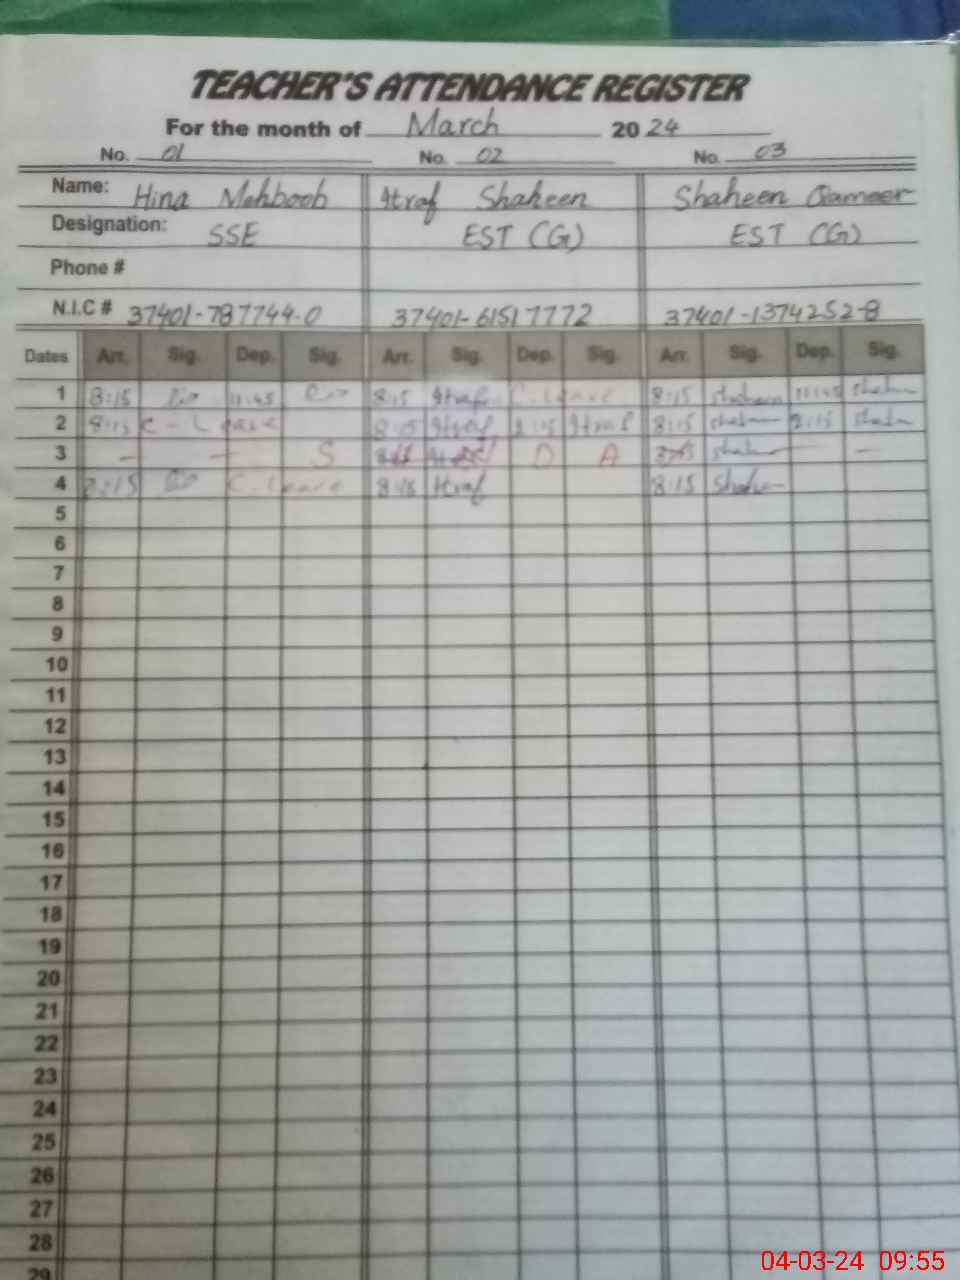 TEACHER'S ATTENDANCE REGISTER
For the month of March 2024
No. 01 No. 02 No. 03
Name: Hina Mehboob Itraf Shaheen Shaheen Qameer
Designation: SSE EST (G) EST (G)
Phone #
N.I.C # 37401-787744-0 37401-61517772 37401-1374252-8
Dates Arr. Sig. Dep. Sig. Arr. Sig. Dep. Sig. Arr. Sig. Dep. Sig.
1 8:15 11:45 8:15 Itraf C. Leave 8:15 Shaheen 11:45
2 8:15 C-Leave 8:15 Itraf 2:15 Itraf 8:15 2:15
3 - - S D A -
4 8:15 C. Leave 8:15 Itraf 8:15
5
6
7
8
9
10
11
12
13
14
15
16
17
18
19
20
21
22
23
24
25
26
27
28
29
04-03-24 09:55